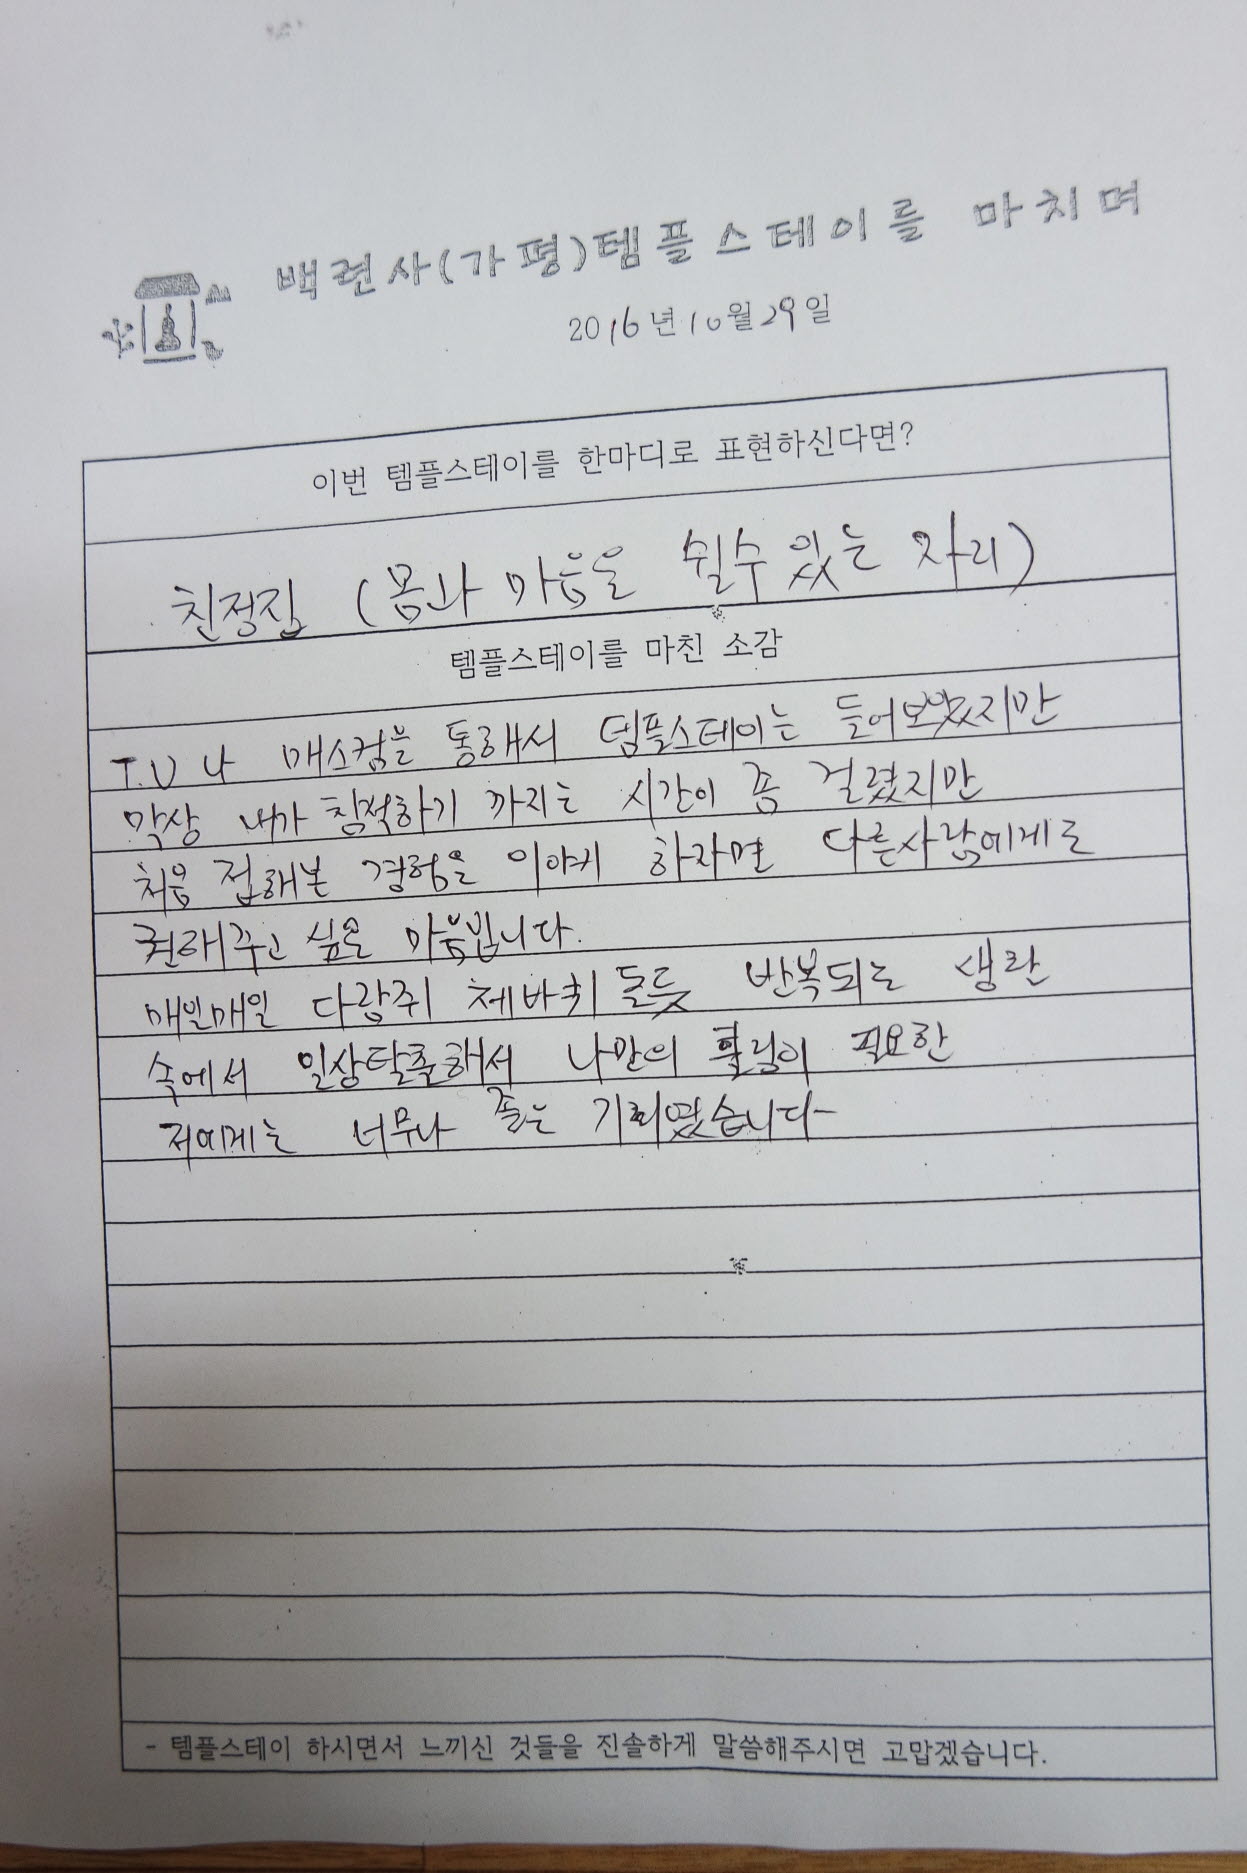 백련사(가평)템플스테이를 마치며
2016년 10월 29일
이번 템플스테이를 한마디로 표현하신다면?
친정집 (몸과 마음을 쉴수 있는 자리)
템플스테이를 마친 소감
T.V 나 매스컴을 통해서 템플스테이는 들어보았지만
막상 내가 참석하기 까지는 시간이 좀 걸렸지만
처음 접해본 경험을 이야기 하자면 다른사람에게도
권해주고 싶은 마음입니다.
매일매일 다람쥐 체바퀴 돌듯 반복되는 생활
속에서 일상탈출해서 나만의 힐링이 필요한
저에게는 너무나 좋은 기회였습니다
- 템플스테이 하시면서 느끼신 것들을 진솔하게 말씀해주시면 고맙겠습니다.